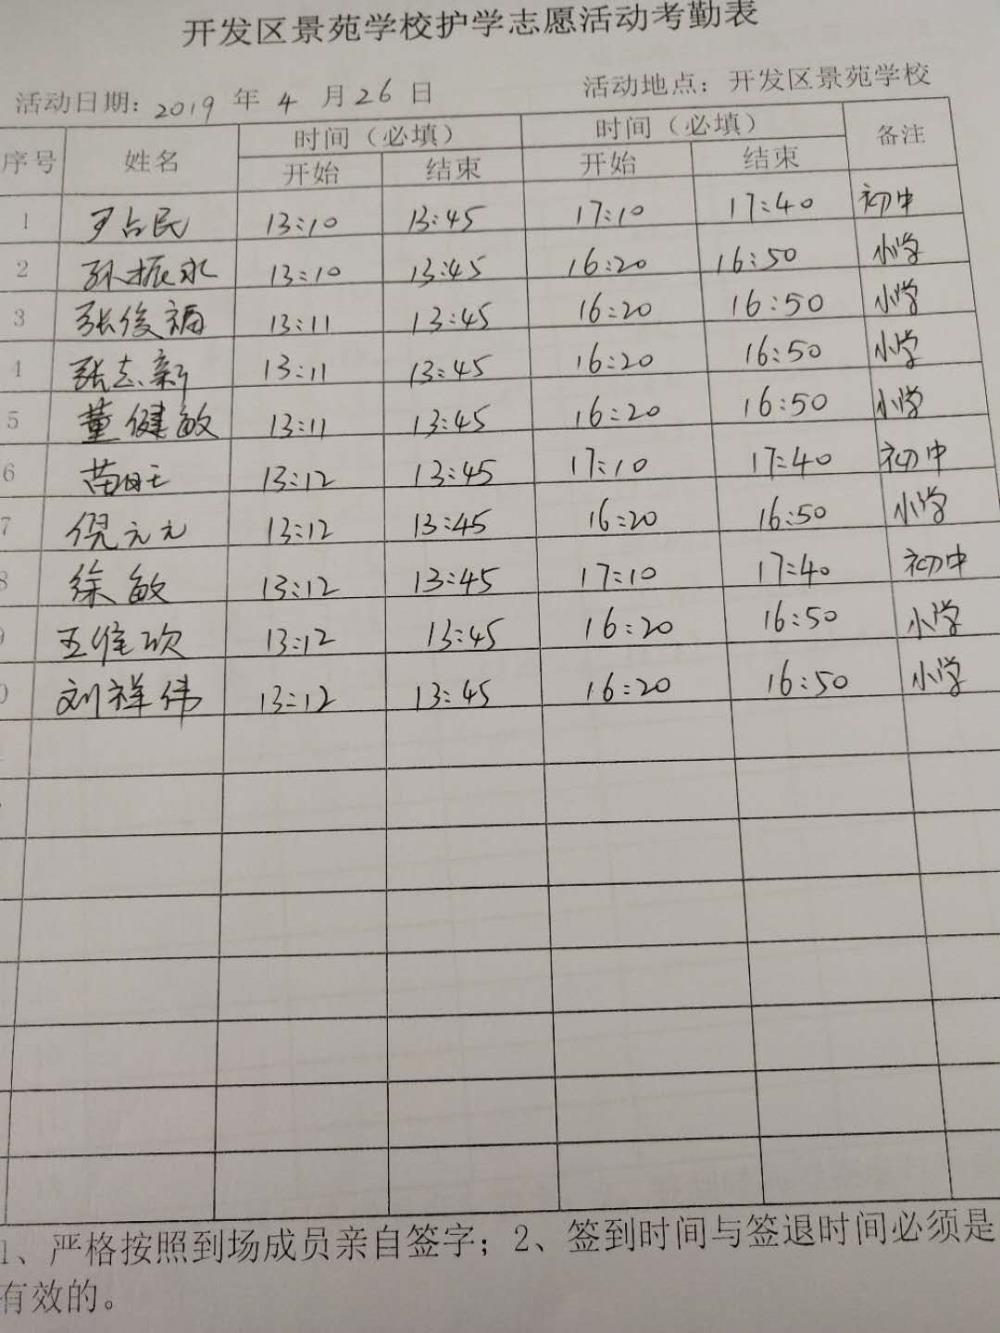 开发区景苑学校护学志愿活动考勤表
活动日期: 2019 年 4 月 26 日 活动地点: 开发区景苑学校
序号 姓名 时间（必填） 时间（必填） 备注
开始 结束 开始 结束
1 占民 13:10 13:45 17:10 17:40 初中
2 孙振永 13:10 13:45 16:20 16:50 小学
3 张俊福 13:11 13:45 16:20 16:50 小学
4 张志新 13:11 13:45 16:20 16:50 小学
5 董健敏 13:11 13:45 16:20 16:50 小学
6 苗旺 13:12 13:45 17:10 17:40 初中
7 倪元元 13:12 13:45 16:20 16:50 小学
8 徐敏 13:12 13:45 17:10 17:40 初中
王维 13:12 13:45 16:20 16:50 小学
0 刘祥伟 13:12 13:45 16:20 16:50 小学
1、严格按照到场成员亲自签字；2、签到时间与签退时间必须是
有效的。